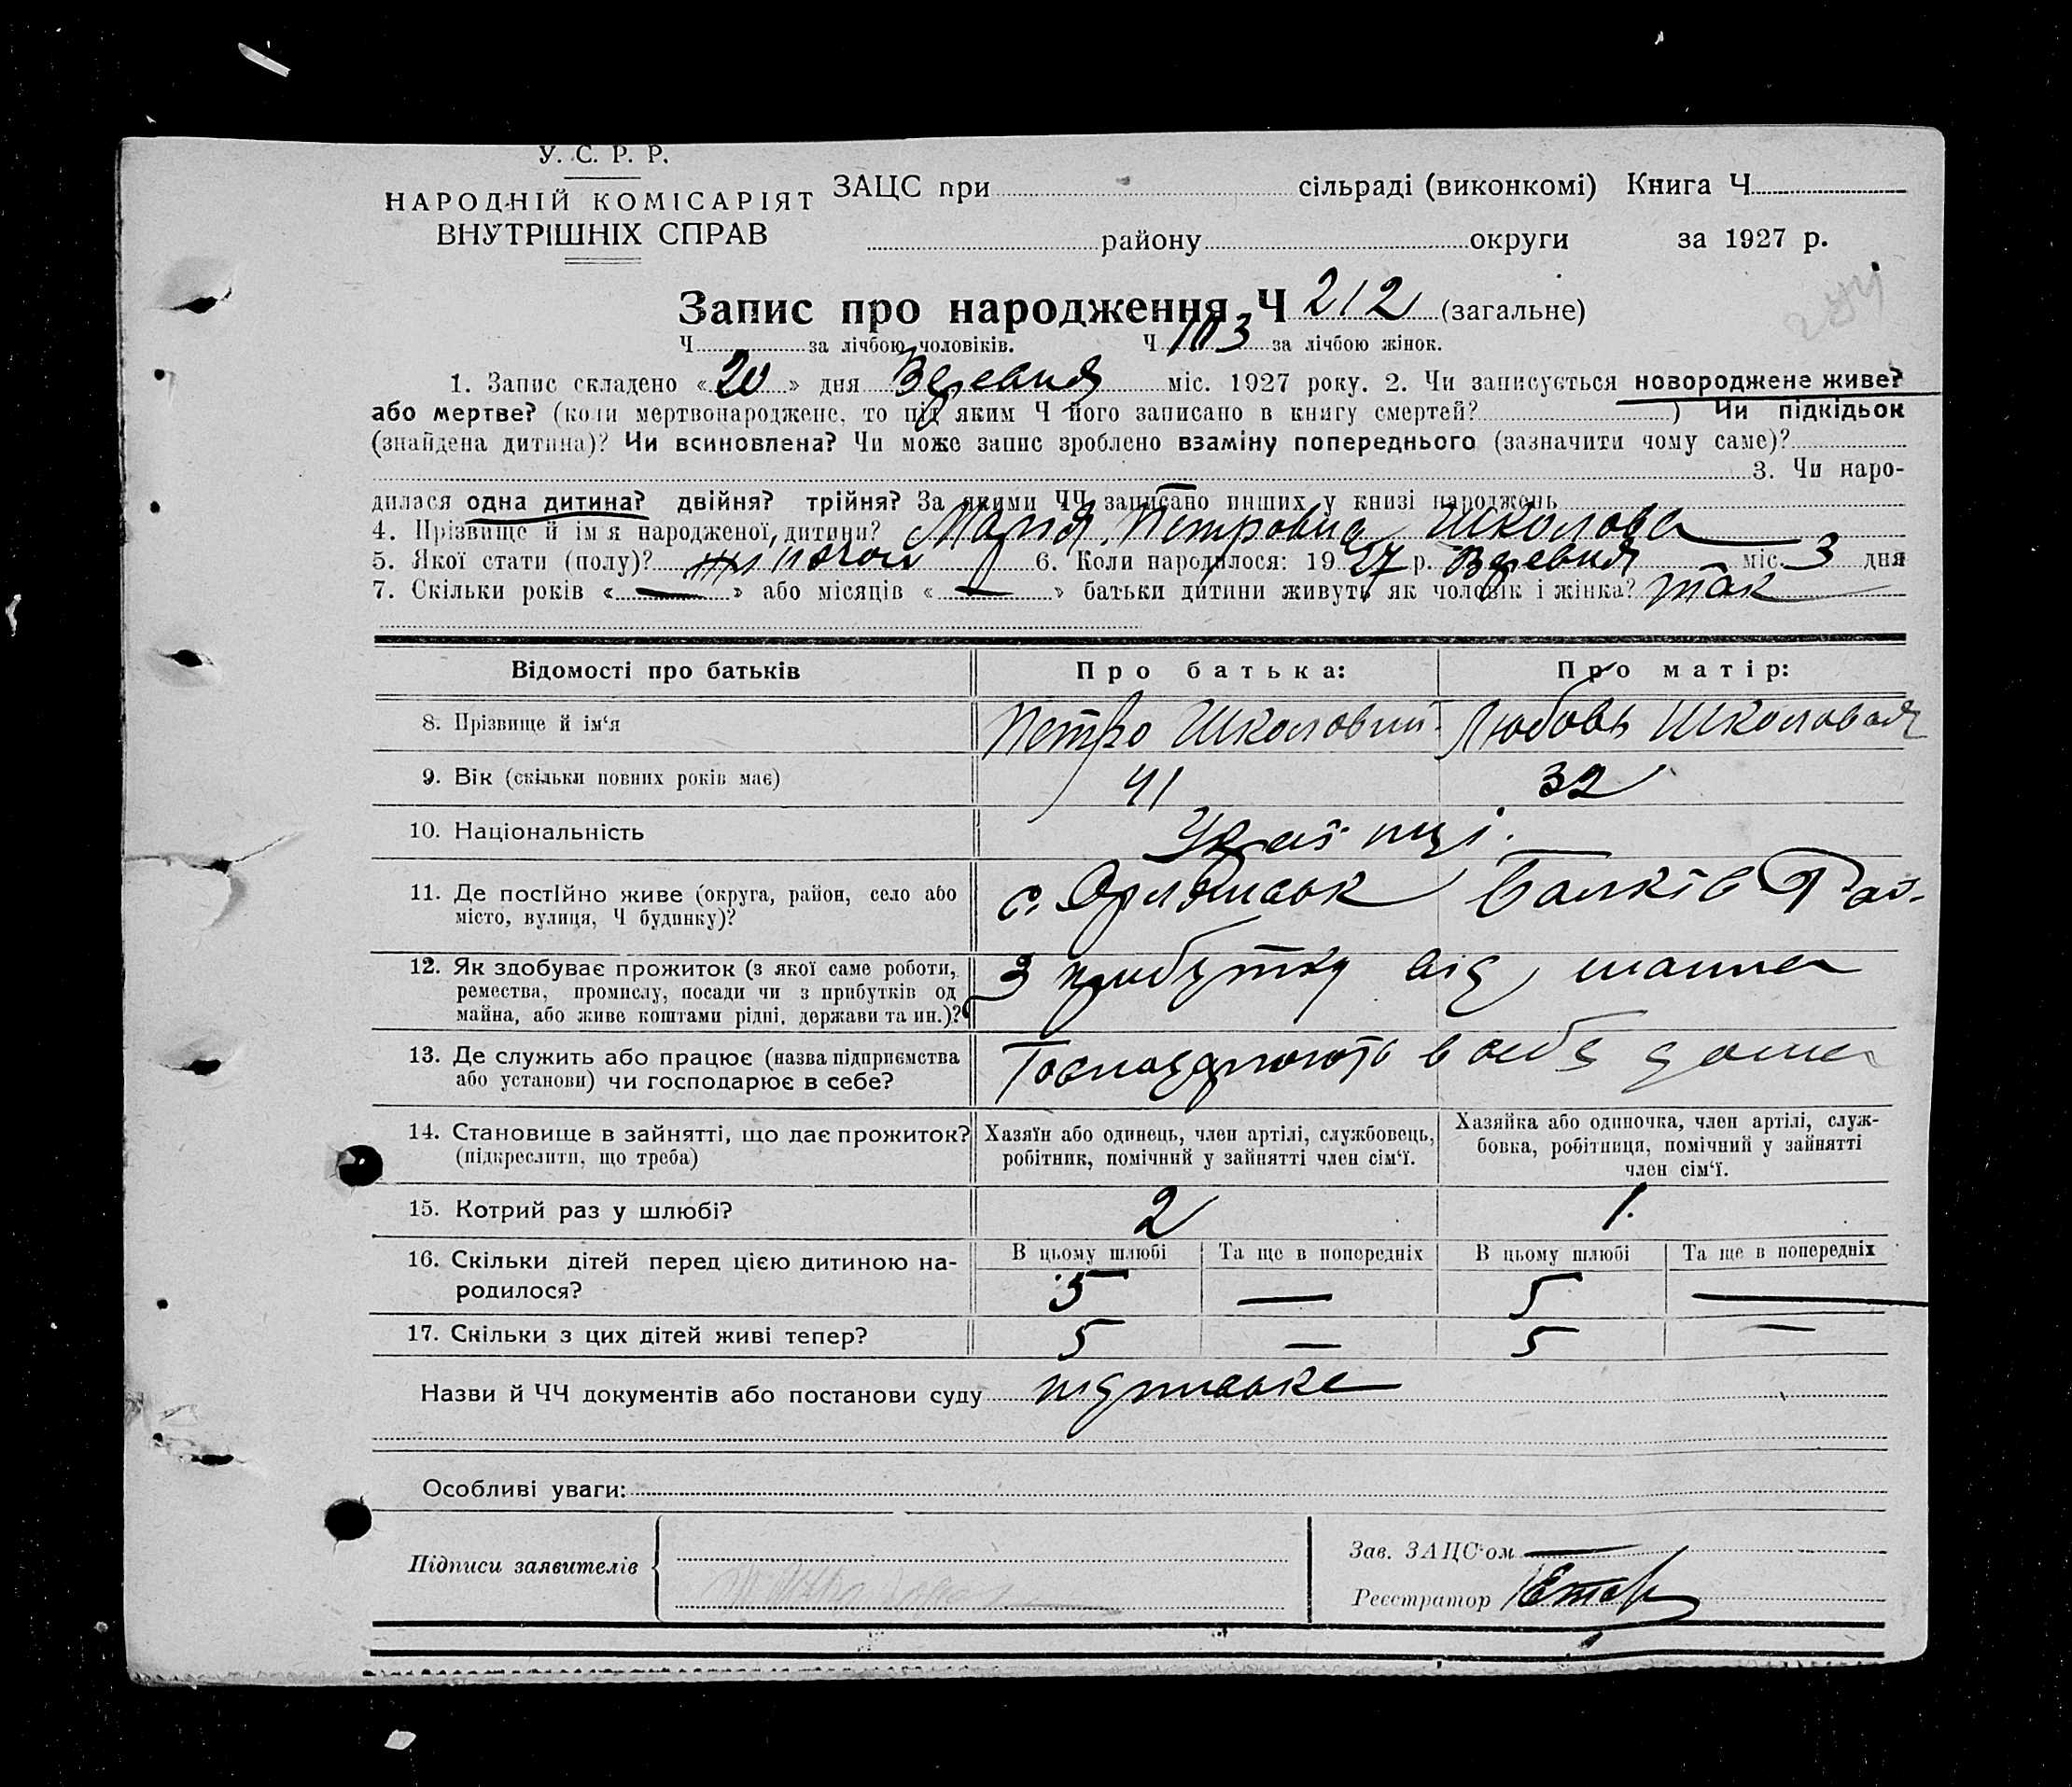 У. С. Р. Р.
НАРОДНІЙ КОМІСАРІЯТ
ВНУТРІШНІХ СПРАВ
ЗАЦС при сільраді (виконкомі) Книга Ч
району округи за 1927 р.
Запис про народження Ч 212 (загальне)
Ч за лічбою чоловіків. Ч 103 за лічбою жінок.
1. Запис складено «20» дня Вересня міс. 1927 року. 2. Чи записується новороджене живе?
або мертве? (коли мертвонароджене, то під яким Ч його записано в книгу смертей? ) Чи підкідьок
(знайдена дитина)? Чи всиновлена? Чи може запис зроблено взаміну попереднього (зазначити чому саме)?
3. Чи наро-
дилася одна дитина? двійня? трійня? За якими ЧЧ записано инших у книзі народжень
4. Прізвище й ім'я народженої дитини? Марія Петровна Школова
5. Якої стати (полу)? жіночої 6. Коли народилося: 1927 р. Вересня міс. 3 дня
7. Скільки років « — » або місяців « — » батьки дитини живуть як чоловік і жінка? так
Відомості про батьків Про батька: Про матір:
8. Прізвище й ім'я Петро Школовий Любовь Школовая
9. Вік (скільки повних років має) 41 32
10. Національність Украї нці.
11. Де постійно живе (округа, район, село або
місто, вулиця, Ч будинку)? с. Валків Рай.
12. Як здобуває прожиток (з якої саме роботи,
ремества, промислу, посади чи з прибутків од
майна, або живе коштами рідні, держави та ин.)? З прибутку від майна
13. Де служить або працює (назва підприємства
або установи) чи господарює в себе? Господарюють в себе дома
14. Становище в зайнятті, що дає прожиток?
(підкреслити, що треба)
Хазяїн або одинець, член артілі, службовець,
робітник, помічний у зайнятті член сім'ї.
Хазяйка або одиночка, член артілі, служ-
бовка, робітниця, помічний у зайнятті
член сім'ї.
15. Котрий раз у шлюбі? 2 1.
16. Скільки дітей перед цією дитиною на-
родилося?
В цьому шлюбі Та ще в попередніх В цьому шлюбі Та ще в попередніх
5 — 5 —
17. Скільки з цих дітей живі тепер? 5 — 5 —
Назви й ЧЧ документів або постанови суду
Особливі уваги:
Підписи заявителів
Зав. ЗАЦС'ом —
Реєстратор